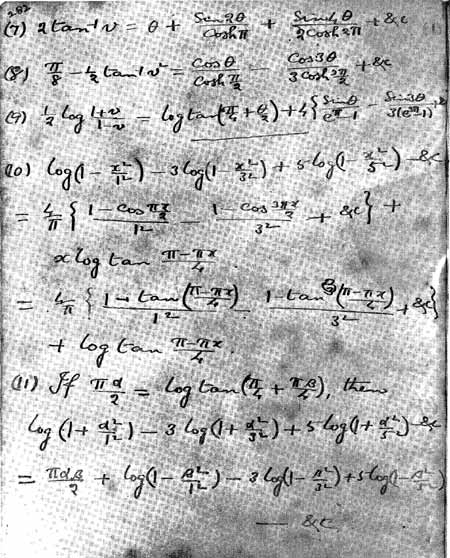 282
(7) 2 tan⁻¹ v = θ + Sin 2θ / Cosh π + Sin 4θ / 2 Cosh 2π + &c
(8) π/8 − ½ tan⁻¹ v² = Cos θ / Cosh π/2 − Cos 3θ / 3 Cosh 3π/2 + &c
(9) ½ log (1+v)/(1−v) = log tan(π/4 + θ/2) + 4 { Sin θ / (e^π − 1) − Sin 3θ / 3(e^3π − 1) + &c
(10) log(1 − x²/1²) − 3 log(1 − x²/3²) + 5 log(1 − x²/5²) − &c
= 4/π { (1 − cos πx/2) / 1² − (1 − cos 3πx/2) / 3² + &c } +
x log tan (π − πx)/4.
= 4/π { (1 − tan((π − πx)/4)) / 1² − (1 − tan³((π − πx)/4)) / 3² + &c }
+ log tan (π − πx)/4.
(11) If πα/2 = log tan(π/4 + πβ/4), then
log(1 + α²/1²) − 3 log(1 + α²/3²) + 5 log(1 + α²/5²) − &c
= παβ/2 + log(1 − β²/1²) − 3 log(1 − β²/3²) + 5 log(1 − β²/5²)
— &c